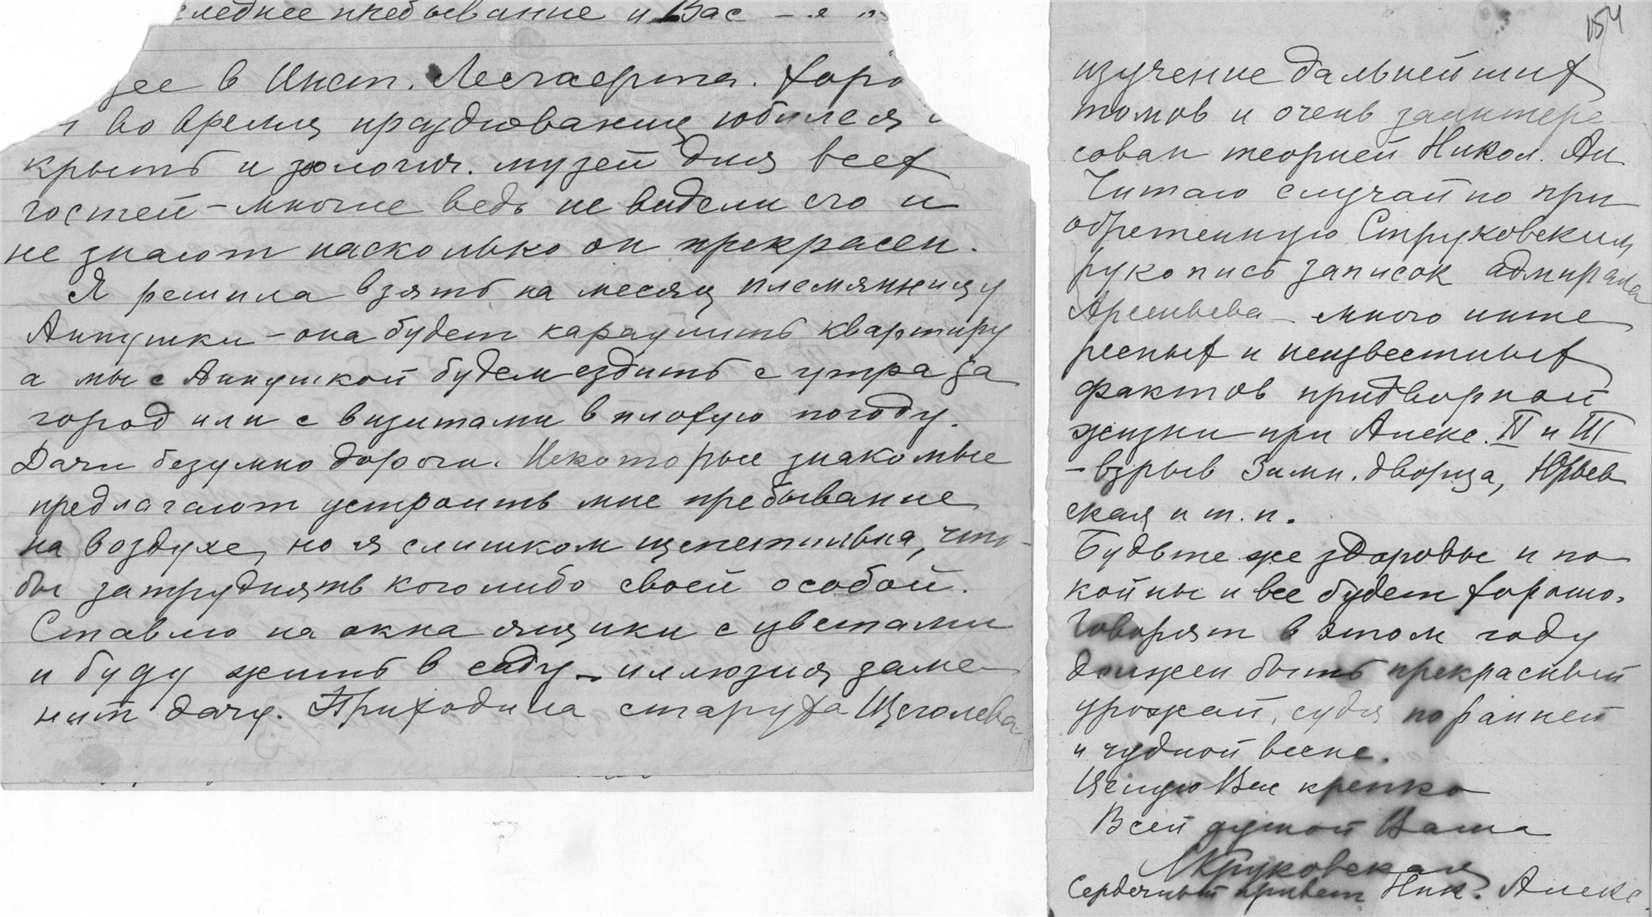 следнее пребывание и Вас –
в Инст. Лесгафта. Хоро
во время празднования юбилея
крыть и зоологич. музей для всех
гостей – многие ведь не видели его и
не знают насколько он прекрасен.
Я решила взять на месяц племянницу
Аннушки – она будет караулить квартиру
а мы с Аннушкой будем ездить с утра за
город или с визитами в плохую погоду.
Дачи безумно дороги. Некоторые знакомые
предлагают устроить мне пребывание
на воздухе, но я слишком щепетильна, что-
бы затруднять кого либо своей особой.
Ставлю на окна ящики с цветами
и буду жить в саду – иллюзия заме
нит дачу. Приходила старуха Щеголева
154
изучение дальнейших
томов и очень заинтере
сован теорией Никол. Ал
Читаю случайно при
обретенную Струковским
рукопись записок адмирала
Арсеньева – много инте
ресных и неизвестных
фактов придворной
жизни при Алекс. II и III
– взрыв Зимн. дворца, Юрьев
ская и т. п.
Будьте же здоровы и по
койны и все будет хорошо.
Говорят в этом году
должен быть прекрасный
урожай, судя по ранней
и чудной весне.
Целую Вас крепко
Всей душой Ваша
Крюковская
Сердечный привет Ник. Алекс.